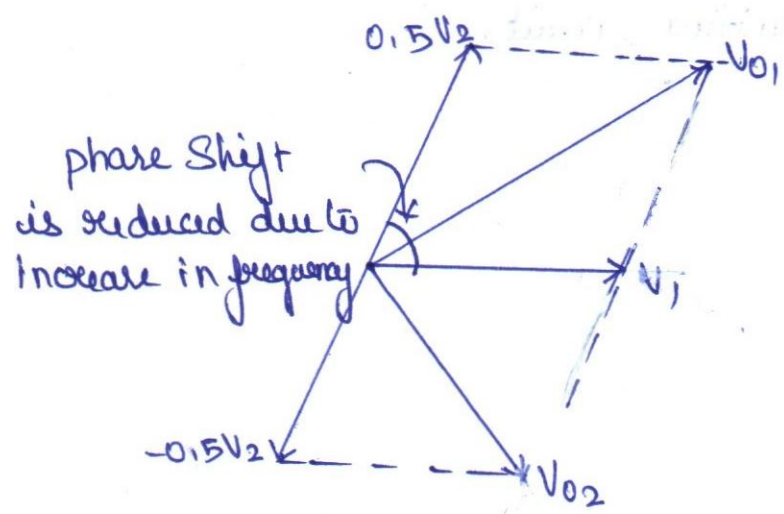 0.5V2
V01
phase Shift
is reduced due to
increase in frequency
V1
-0.5V2
V02